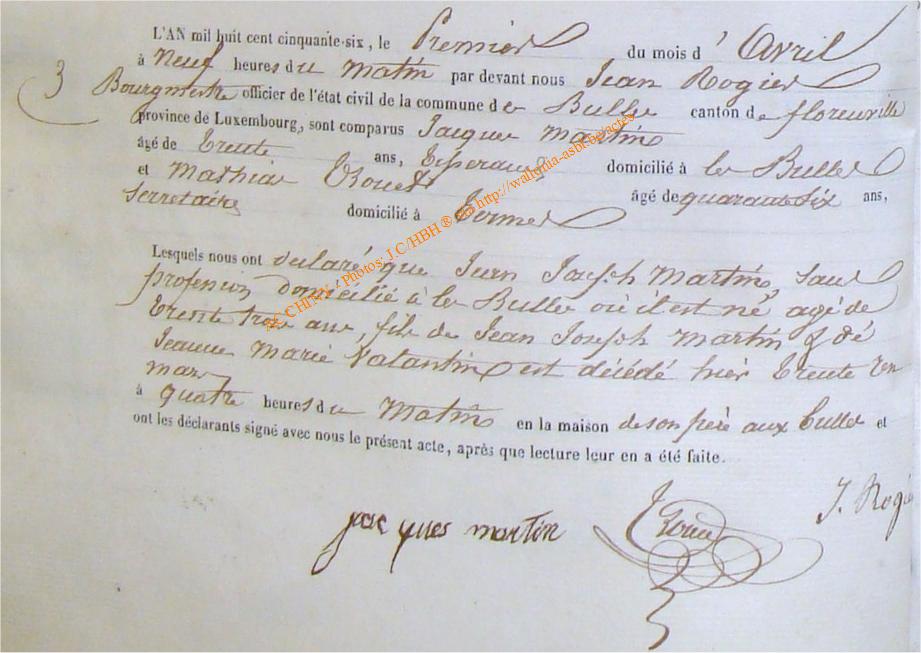 L'AN mil huit cent cinquante-six, le Premier du mois d' Avril
à Neuf heures du Matin par devant nous Jean Rogier
3
Bourgmestre officier de l'état civil de la commune de les Bulles canton de florenville
province de Luxembourg, sont comparus Jacques Martin
âgé de trente ans, domicilié à les Bulles
et Mathias âgé de quarante six ans,
Secretaire domicilié à termes
Lesquels nous ont declaré que Jean Joseph Martin, sans
profession domicilié à les Bulles où il est né agé de
trente trois ans, fils de Jean Joseph Martin & de
Jeanne Marie Valantin est décédé hier trente un
mars
à quatre heures du Matin en la maison de son père aux bulles et
ont les déclarants signé avec nous le présent acte, après que lecture leur en a été faite.
jacques martin J. Rogie
CHINY - Photos: J.C/HBH ® via http://wallonia-asbl.eg/actes